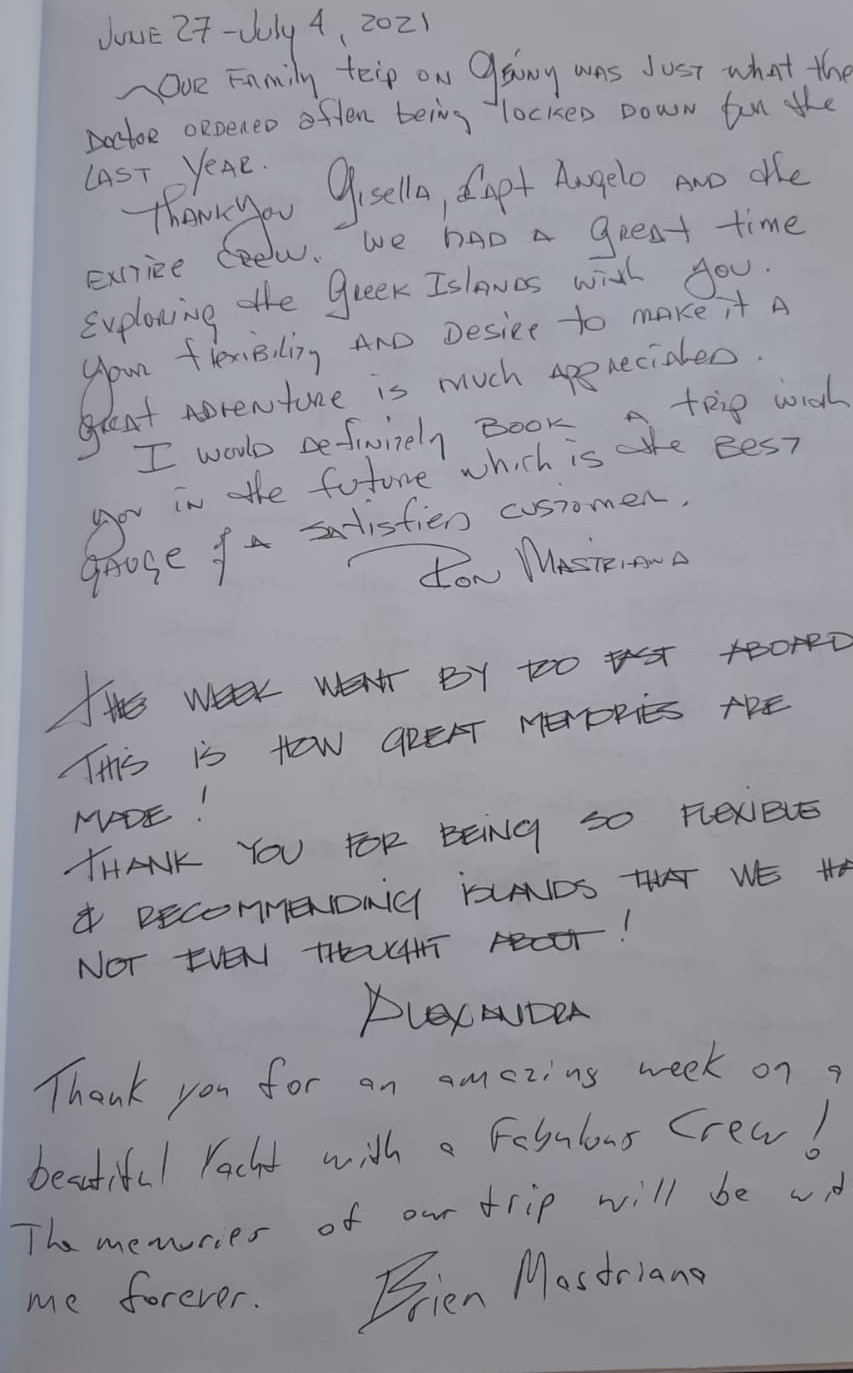 JUNE 27 - July 4, 2021
OUR Family trip on Genny was just what the
Doctor ordered after being locked down for the
last year.
Thank you Gisella, Capt Angelo and the
entire crew. We had a great time
exploring the Greek Islands with you.
Your flexibility and desire to make it a
great adventure is much appreciated.
I would definitely book a trip with
you in the future which is the best
gauge of a satisfied customer.
Ron Mastriana
THE WEEK WENT BY TOO FAST ABOARD
THIS IS HOW GREAT MEMORIES ARE
MADE!
THANK YOU FOR BEING SO FLEXIBLE
& RECOMMENDING ISLANDS THAT WE HA
NOT EVEN THOUGHT ABOUT!
ALEXANDRA
Thank you for an amazing week on a
beautiful Yacht with a Fabulous Crew!
The memories of our trip will be wit
me forever. Brien Mastriana